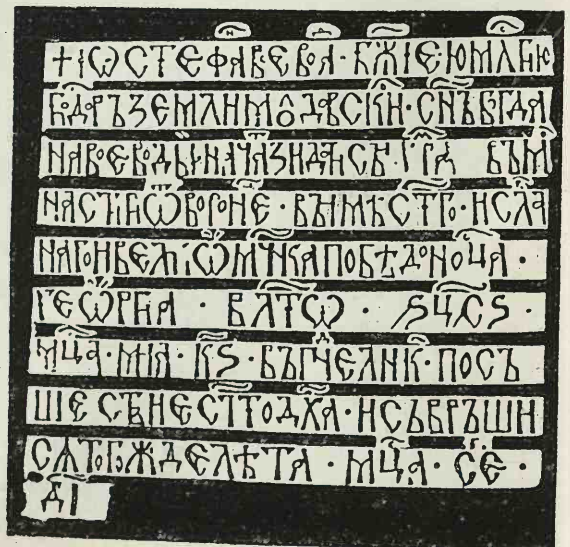 +ІѠСТЕФАⷩ҇ВОЕВОⷣА·БЖ҃ІЕЮМЛⷭ҇ТІЮ
ГОДАРЪЗЕМЛИМОДАВСКИ·СН҃ЪБОГДА
НАВОЕВОДЫ·НАЧАЗИДАТСЪ·ВЪМ
НАСТИРѠВОРОНЕ·ВЪИМѢСТ҃ГО·ИСЛА
НАГОИВЕЛИѠМЧ҃НКАПОБѢДОНОЦА·
ГЕѠРГІА·ВЛТѠ·ЅЦЧЅ·
МЦ҃А·МІА·КЅ·ВЪПЧЕЛНИК·ПОСЪ
ШЕСТВНЕСТ҃ГОДХ҃А·ИСЪВРЪШИ
СѦТОГОЖДЕЛѢТА·МЦ҃А·СЕⷫ҇·
ДІ